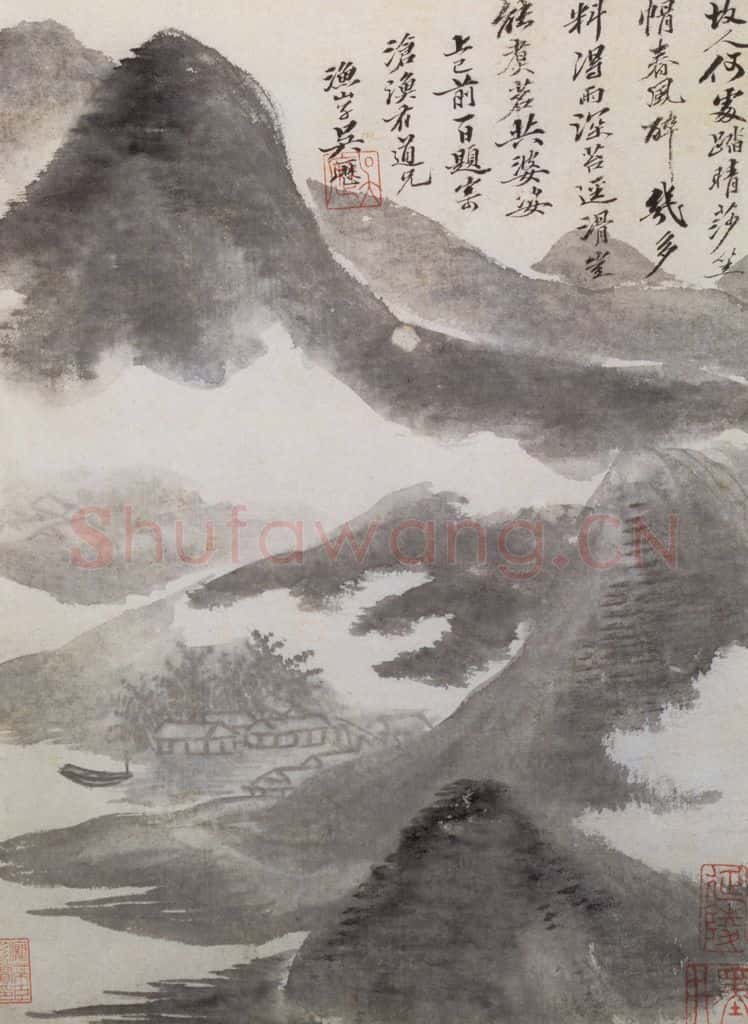 故人何處踏晴莎
帽春風醉幾多
料得雨深苔逕滑豈
能煮茗共婆娑
上巳前一日題寄
滄漁道兄
漁山子吳歷
Shufawang.CN
延陵
墨井